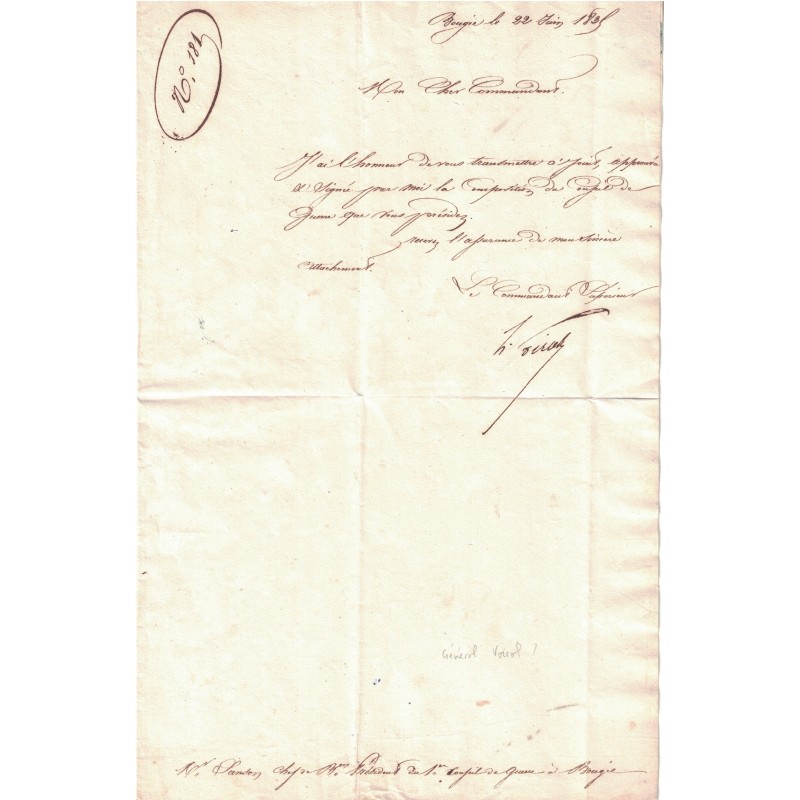 Bougie le 22 Juin 1835
N.° 181
Mon Cher Commandant.
J'ai l'honneur de vous transmettre ci joint, approuvée
et Signée par moi la Composition du Conseil de
Guerre que vous présidez.
recevez l'assurance de mon Sincère
attachement.
Le Commandant Supérieur
Général Voirol ?
Mr. chef de Bon. Président du 1er Conseil de Guerre à Bougie